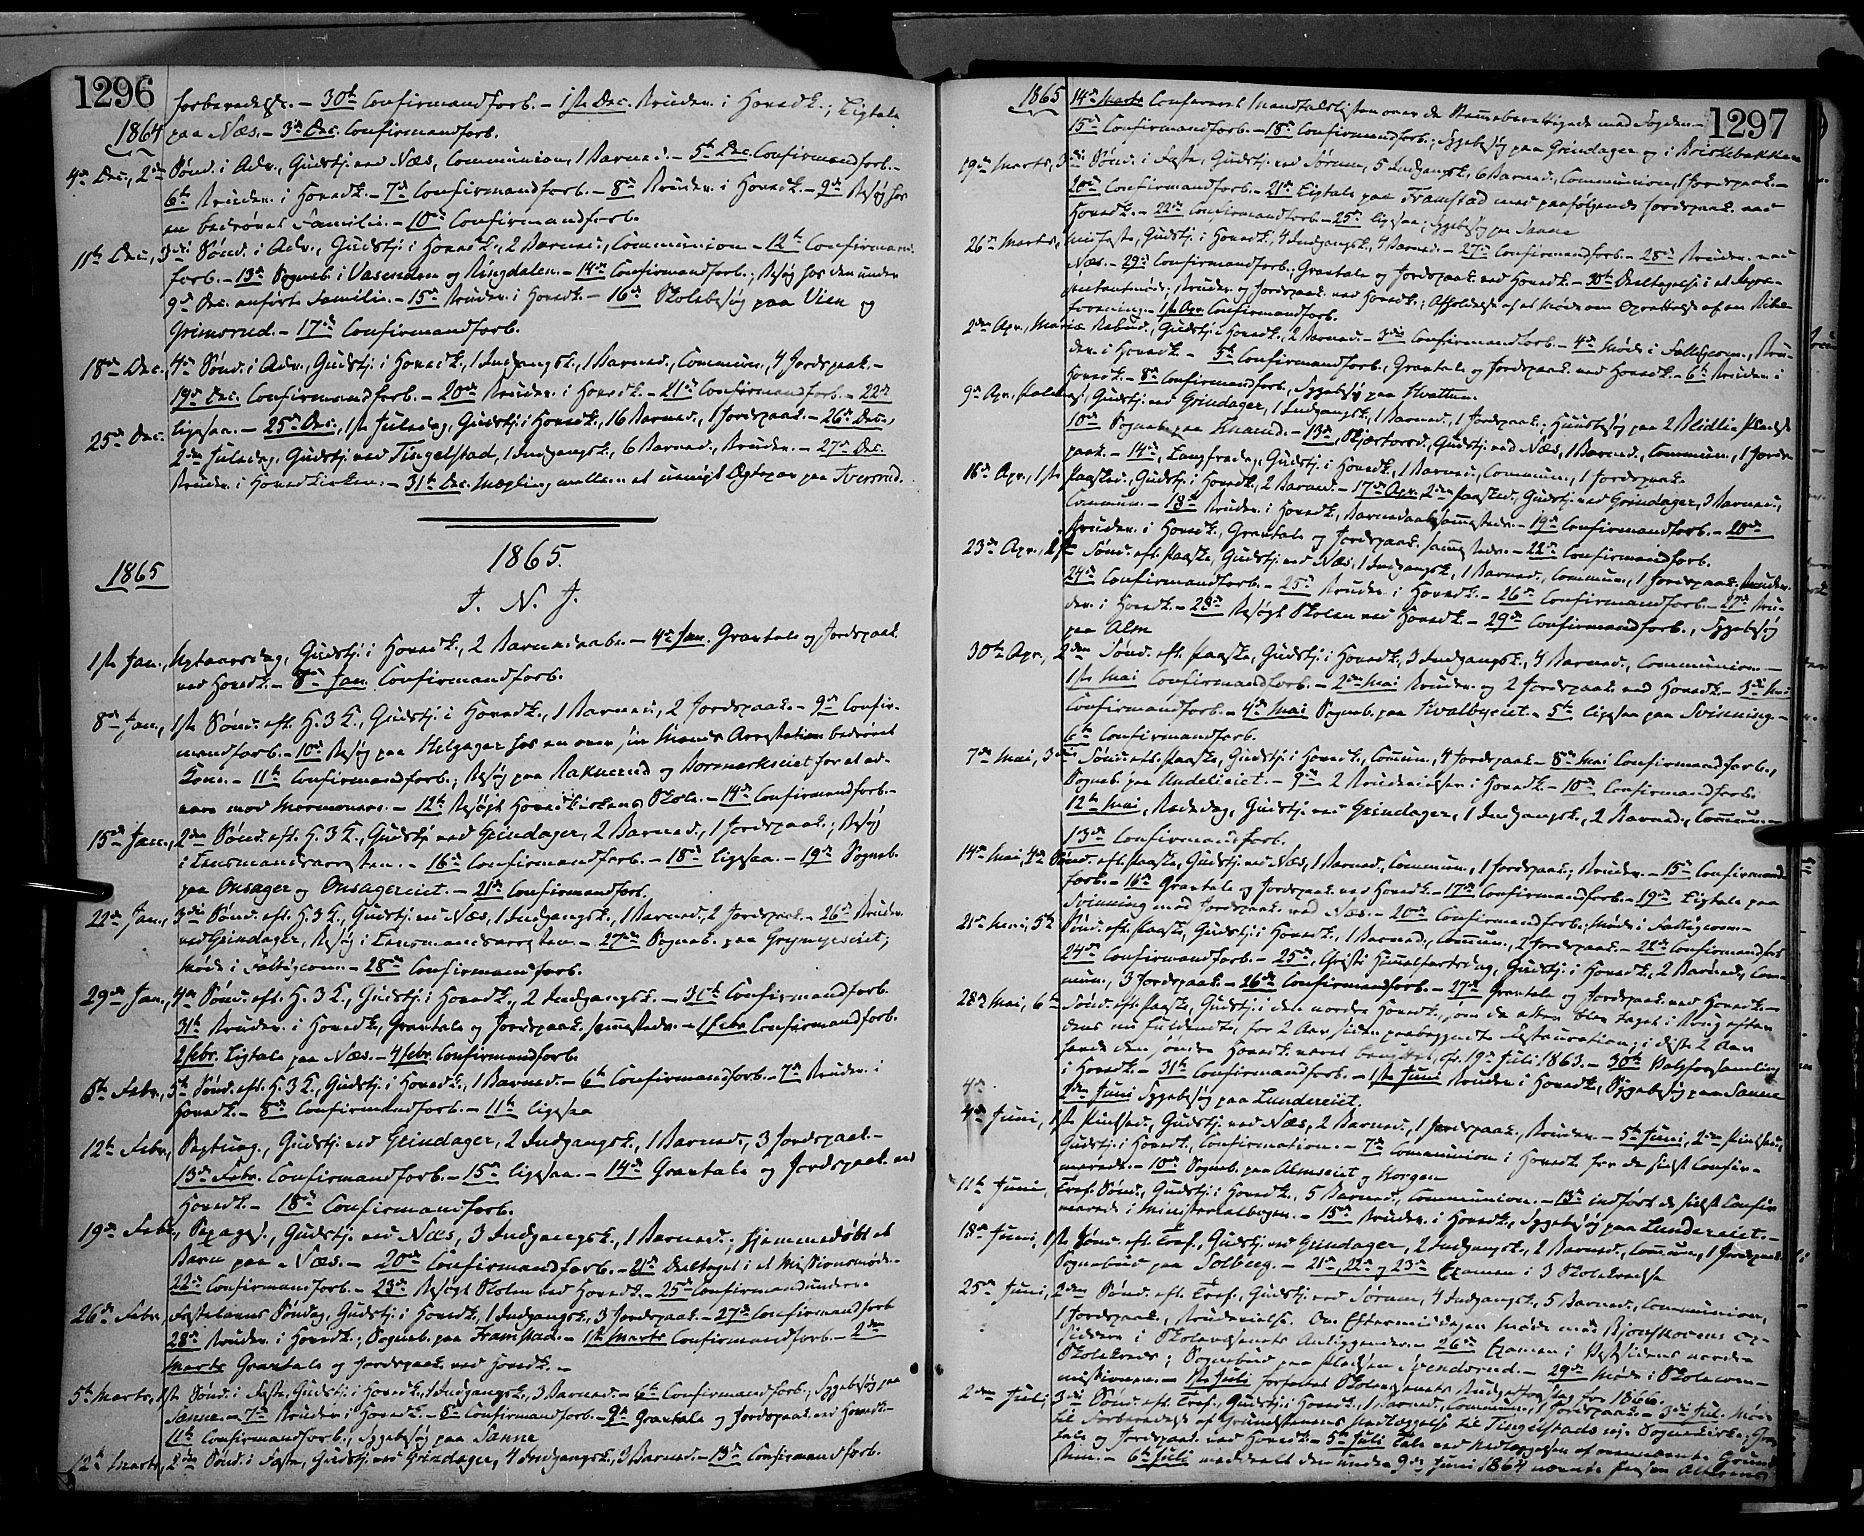 1296
forberedelse. – 30te Confirmandforb. – 1ste Dec. Brudev. i Hovedk.; Ligtale
1864 paa Næs. – 3die Dec. Confirmandforb.
4de Dec., 2den Sønd. i Adv., Gudstj. ved Næs, Communion, 1 Barned. – 5te Dec. Confirmandforb. –
6te Brudev. i Hovedk. – 7de Confirmandforb. – 8de Brudev. i Hovedk. – 9de Besøg hos
en bedrøvet Familie. – 10de Confirmandforb.
11te Dec., 3die Sønd. i Adv., Gudstj. i Hovedk., 2 Barned., Communion. – 12te Confirmand-
forb. – 13de Sogneb. i Vasenden og Ringdalen. – 14de Confirmandforb.; Besøg hos den under
9de Dec. anførte Familie. – 15de Brudev. i Hovedk. – 16de Skolebesøg paa Vien og
Grimsrud. – 17de Confirmandforb.
18de Dec. 4de Sønd. i Adv., Gudstj. i Hovedk., 1 Indgangsk., 1 Barned., Commun., 4 Jordspaak. –
19de Dec. Confirmandforb. – 20de Brudev. i Hovedk. – 21de Confirmandforb. – 22de
ligesaa. – 25de Dec., 1ste Juledag, Gudstj. i Hovedk., 16 Barned., 1 Jordspaak. – 26de Dec.,
25de Dec. 2den Juledag, Gudstj. ved Tingelstad, 1 Indgangsk., 6 Barned., Brudev. – 27de Dec.
Brudev. i Hovedkirken. – 31te Dec. Mægling mellem et uenigt Ægtepar paa Iversrud.
1865.
1865
I. N. J.
1ste Jan., Nytaarsdag, Gudstj. i Hovedk., 2 Barnedaab. – 4de Jan. Gravtale og Jordspaak.
ved Hovedk. – 7de Jan. Confirmandforb.
8de Jan., 1ste Sønd. eft. H. 3 K., Gudstj. i Hovedk., 1 Barned., 2 Jordspaak. – 9de Confir-
mandforb. – 10de Besøg paa Helgager hos en over sin Mands Arrestation bedrøvet
Kone. – 11te Confirmandforb.; Besøg paa Raknerud og for at ad-
vare mod Mormoner. – 12te Besøgt Hovedkirkens Skole. – 14de Confirmandforb. –
15de Jan., 2den Sønd. eft. H. 3 K., Gudstj. ved Grindager, 2 Barned., 1 Jordspaak.; Besøg
i Lensmandsarresten. – 16de Confirmandforb. – 18de ligesaa. – 19de Sogneb.
paa Onsager og Onsagereiet. – 21de Confirmandforb.
22de Jan., 3die Sønd. eft. H. 3 K., Gudstj. ved Næs, 1 Indgangsk., 1 Barned., 2 Jordspaak. – 26de Brudev.
ved Grindager, Besøg i Lensmandsarresten. – 27de Sogneb. paa
Møde i Fattigcom. – 28de Confirmandforb.
29de Jan., 4de Sønd. eft. H. 3 K., Gudstj. i Hovedk., 2 Indgangsk. – 30te Confirmandforb.
31te Brudev. i Hovedk., Gravtale og Jordspaak. sammesteds. – 1 Febr. Confirmandforb.
2 Febr. Ligtale paa Næs. – 4 Febr. Confirmandforb.
5te Febr., 5te Sønd. eft. H. 3 K., Gudstj. i Hovedk., 1 Barned. – 6te Confirmandforb. – 7de Brudev. i
Hovedk. – 8de Confirmandforb. – 11te ligesaa
12te Febr., Septuag., Gudstj. ved Grindager, 2 Indgangsk., 1 Barned., 3 Jordspaak. –
13de Febr. Confirmandforb. – 15de ligesaa. – 14de Gravtale og Jordspaak. ved
Hovedk. – 18de Confirmandforb.
19de Febr., Sexages., Gudstj. ved Næs, 3 Indgangsk., 1 Barned.; hjemmedøbt et
Barn paa Næs. – 20de Confirmandforb. – 21de Deeltaget i et Missionsmøde. –
22de Confirmandforb. – 23de Besøgt Skolen ved Hovedk. – 25de Confirmandunderv.
26de Febr., Fastelavns Søndag, Gudstj. i Hovedk., 1 Indgangsk., 3 Jordspaak. – 27de Confirmandforb
28de Brudev. i Hovedk.; Sogneb. paa Framstad. – 1ste Marts Confirmandforb. – 2den
Marts Gravtale og Jordspaak. ved Hovedk. –
5te Marts, 1ste Sønd. i Faste, Gudstj. i Hovedk., 1 Indgangsk., 3 Barned. – 6te Confirmandforb., Sygebesøg paa
Sanne. – 7de Brudev. i Hovedk. – 8de Confirmandforb. – 9de Gravtale og Jordspaak. ved Hovedk. –
11te Confirmandforb., Sygebesøg paa Sanne
12te Marts, 2den Sønd. i Faste, Gudstj. ved Grindager, 4 Indgangsk., 3 Barned. – 13de Confirmandforb.
1297
1865 14de Marts Confereret Mandtalslisten over de Stemmeberettigede med Fogden. –
15de Confirmandforb. – 18de Confirmandforb.; Sygebesøg paa Grindager og i Birkebakken
19de Marts, 3die Sønd. i Faste, Gudstj. ved Sørum, 5 Indgangsk., 6 Barned., Communion, 1 Jordspaak. –
20de Confirmandforb. – 21de Ligtale paa Framstad med paafølgende Jordspaak. ved
Hovedk. – 22de Confirmandforb. – 25de ligesaa; Sygebesøg paa Sanne
26de Marts, Midfaste, Gudstj. i Hovedk., 4 Indgangsk., 4 Barned. – 27de Confirmandforb. – 28de Brudev. ved
Næs. – 29de Confirmandforb.; Gravtale og Jordspaak. ved Hovedk. – 30te Deeltagelse i et Repræ-
sentantmøde; Brudev. og Jordspaak. ved Hovedk.; Afholdelse af et Møde om Oprettelse af en
forening. – 1ste Apr. Confirmandforb.
2den Apr., Mariæ Bebud., Gudstj. i Hovedk., 2 Barned. – 3die Confirmandforb. – 4de Møde i Fattigcom., Bru-
dev. i Hovedk. – 5te Confirmandforb., Gravtale og Jordspaak. ved Hovedk. – 6te Brudev. i
Hovedk. – 8de Confirmandforb., Sygebesøg paa Hvattum.
9de Apr., Palmes., Gudstj. ved Grindager, 1 Indgangsk., 1 Barned., 1 Jordspaak.; Huusbesøg paa 2
10de Sogneb. paa – 13de, Skjærtorsd., Gudstj. ved Næs, 1 Barned., Commun., 1 Jords-
paak. – 14de, Langfredag, Gudstj. i Hovedk., 1 Barned., Commun., 1 Jordspaak.
16de Apr., 1ste Paasked., Gudstj. i Hovedk., 2 Barned. – 17de Apr. 2den Paasked., Gudstj. ved Grindager, 3 Barned.,
Commun. – 18de Brudev. i Hovedk., Barnedaab sammesteds. – 19de Confirmandforb. – 20de
Brudev. i Hovedk., Gravtale og Jordspaak. sammesteds. – 22de Confirmandforb.
23de Apr., 1ste Sønd. eft. Paaske, Gudstj. ved Næs, 1 Indgangsk., 1 Barned., Commun., 1 Jordspaak., Brudev.
24de Confirmandforb. – 25de Brudev. i Hovedk. – 26de Confirmandforb. – 27de Bru-
dev. i Hovedk. – 28de Besøgt Skolen ved Hovedk. – 29de Confirmandforb., Sygebesøg
paa Alm
30te Apr., 2den Sønd. eft. Paaske, Gudstj. i Hovedk., 3 Indgangsk., 4 Barned., Communion. –
1ste Mai Confirmandforb. – 2den Mai Brudev. og 2 Jordspaak. ved Hovedk. – 3die Mai
Confirmandforb. – 4de Mai Sogneb. paa Hvalbyeiet. – 5te ligesaa paa Svinning. –
6te Confirmandforb.
7de Mai, 3die Sønd. eft. Paaske, Gudstj. i Hovedk., Commun., 4 Jordspaak. – 8de Mai Confirmandforb.,
Sogneb. paa Undelieiet. – 9de 2 Brudevielser i Hovedk. – 10de Confirmandforb.
12te Mai, Bededag, Gudstj. ved Grindager, 1 Indgangsk., 2 Barned., Commun. –
13de Confirmandforb.
14de Mai, 4de Sønd. eft. Paaske, Gudstj. ved Næs, 1 Barned., Commun., 1 Jordspaak., Brudev. – 15de Confirmand-
forb. – 16de Gravtale og Jordspaak. ved Hovedk. – 17de Confirmandforb. – 19de Ligtale paa
Svinning med Jordspaak. ved Næs. – 20de Confirmandforb., Møde i Fattigcom. –
21de Mai, 5te Sønd. eft. Paaske, Gudstj. i Hovedk., 1 Barned., Commun., 2 Jordspaak. – 22de Confirmandforb
24de Confirmandforb. – 25de, Christi Himmelfartsdag, Gudstj. i Hovedk., 2 Barned., Com-
mun., 3 Jordspaak. – 26de Confirmandforb. – 27de Gravtale og Jordspaak. ved Hovedk. –
28de Mai, 6te Sønd. eft. Paaske, Gudstj. i den nordre Hovedk., som da atter blev taget i Brug efter
dens nu fuldendte, for 2 Aar siden paabegyndte Restauration; i disse 2 Aar
havde den søndre Hovedk. været benyttet, cfr. 19de Juli 1863. – 30te Valgforsamling
i Hovedk. – 31te Confirmandforb. – 1ste Juni Brudev. i Hovedk., Sygebesøg paa Sanne
2den Juni Sygebesøg paa Lundereiet.
4de Juni, 1ste Pintsed., Gudstj. ved Næs, 2 Barned., 1 Jordspaak., Brudev. – 5te Juni, 2den Pintsed.,
Gudstj. i Hovedk., Confirmation. – 7de Communion i Hovedk. for de sidst Confir-
merede. – 10de Sogneb. paa Almseiet og Horgen
11te Juni, Tref. Sønd., Gudstj. i Hovedk., 5 Barned., Communion. – 13de indført de sidst Confir-
merede i Ministerialbogen. – 15de Brudev. i Hovedk., Sygebesøg paa Lundereiet. –
18de Juni, 1ste Sønd. eft. Tref., Gudstj. ved Grindager, 2 Indgangsk., 2 Barned., Commun., 1 Jordspaak.
Sognebud paa Solberg. – 21de, 22de og 23de Examen i 3 Skolekredse
25de Juni, 2den Sønd. eft. Tref., Gudstj. ved Sørum, 4 Indgangsk., 5 Barned., Communion,
1 Jordspaak., Brudevielse. Om Eftermiddagen Møde med Bjonskovens Op-
siddere i Skolevæsenets Anliggender. – 26de Examen i Vestsidens nordre
Skolekreds; Sognebud paa Pladsen – 29de Møde i Skolecom-
missionen. – 1ste Juli forfattet Skolevæsenets Budgetforslag for 1866.
2den Juli, 3die Sønd. eft. Tref., Gudstj. i Hovedk., 1 Barned., Commun., 1 Jordspaak. – 3die Jul. Møde
til Forberedelse af Grundstenens Nedlæggelse til Tingelstads nye Sognekirke; Grav-
tale og Jordspaak. ved Hovedk. – 5te Juli Tale ved Nedlæggelsen af ovennævnte Grund-
sten. – 6te Juli meddeelt den under 9de Juni 1864 nævnte